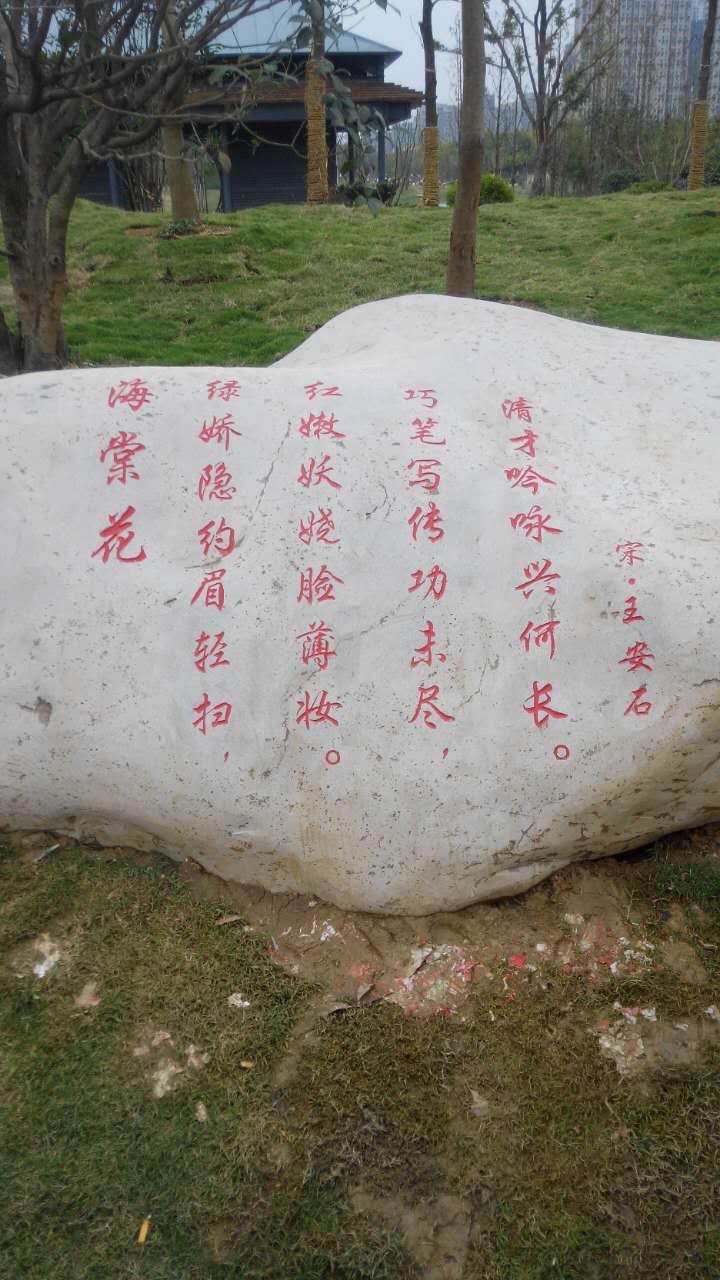 海棠花
绿娇隐约眉轻扫，
红嫩妖娆脸薄妆。
巧笔写传功未尽，
清才吟咏兴何长。
宋·王安石